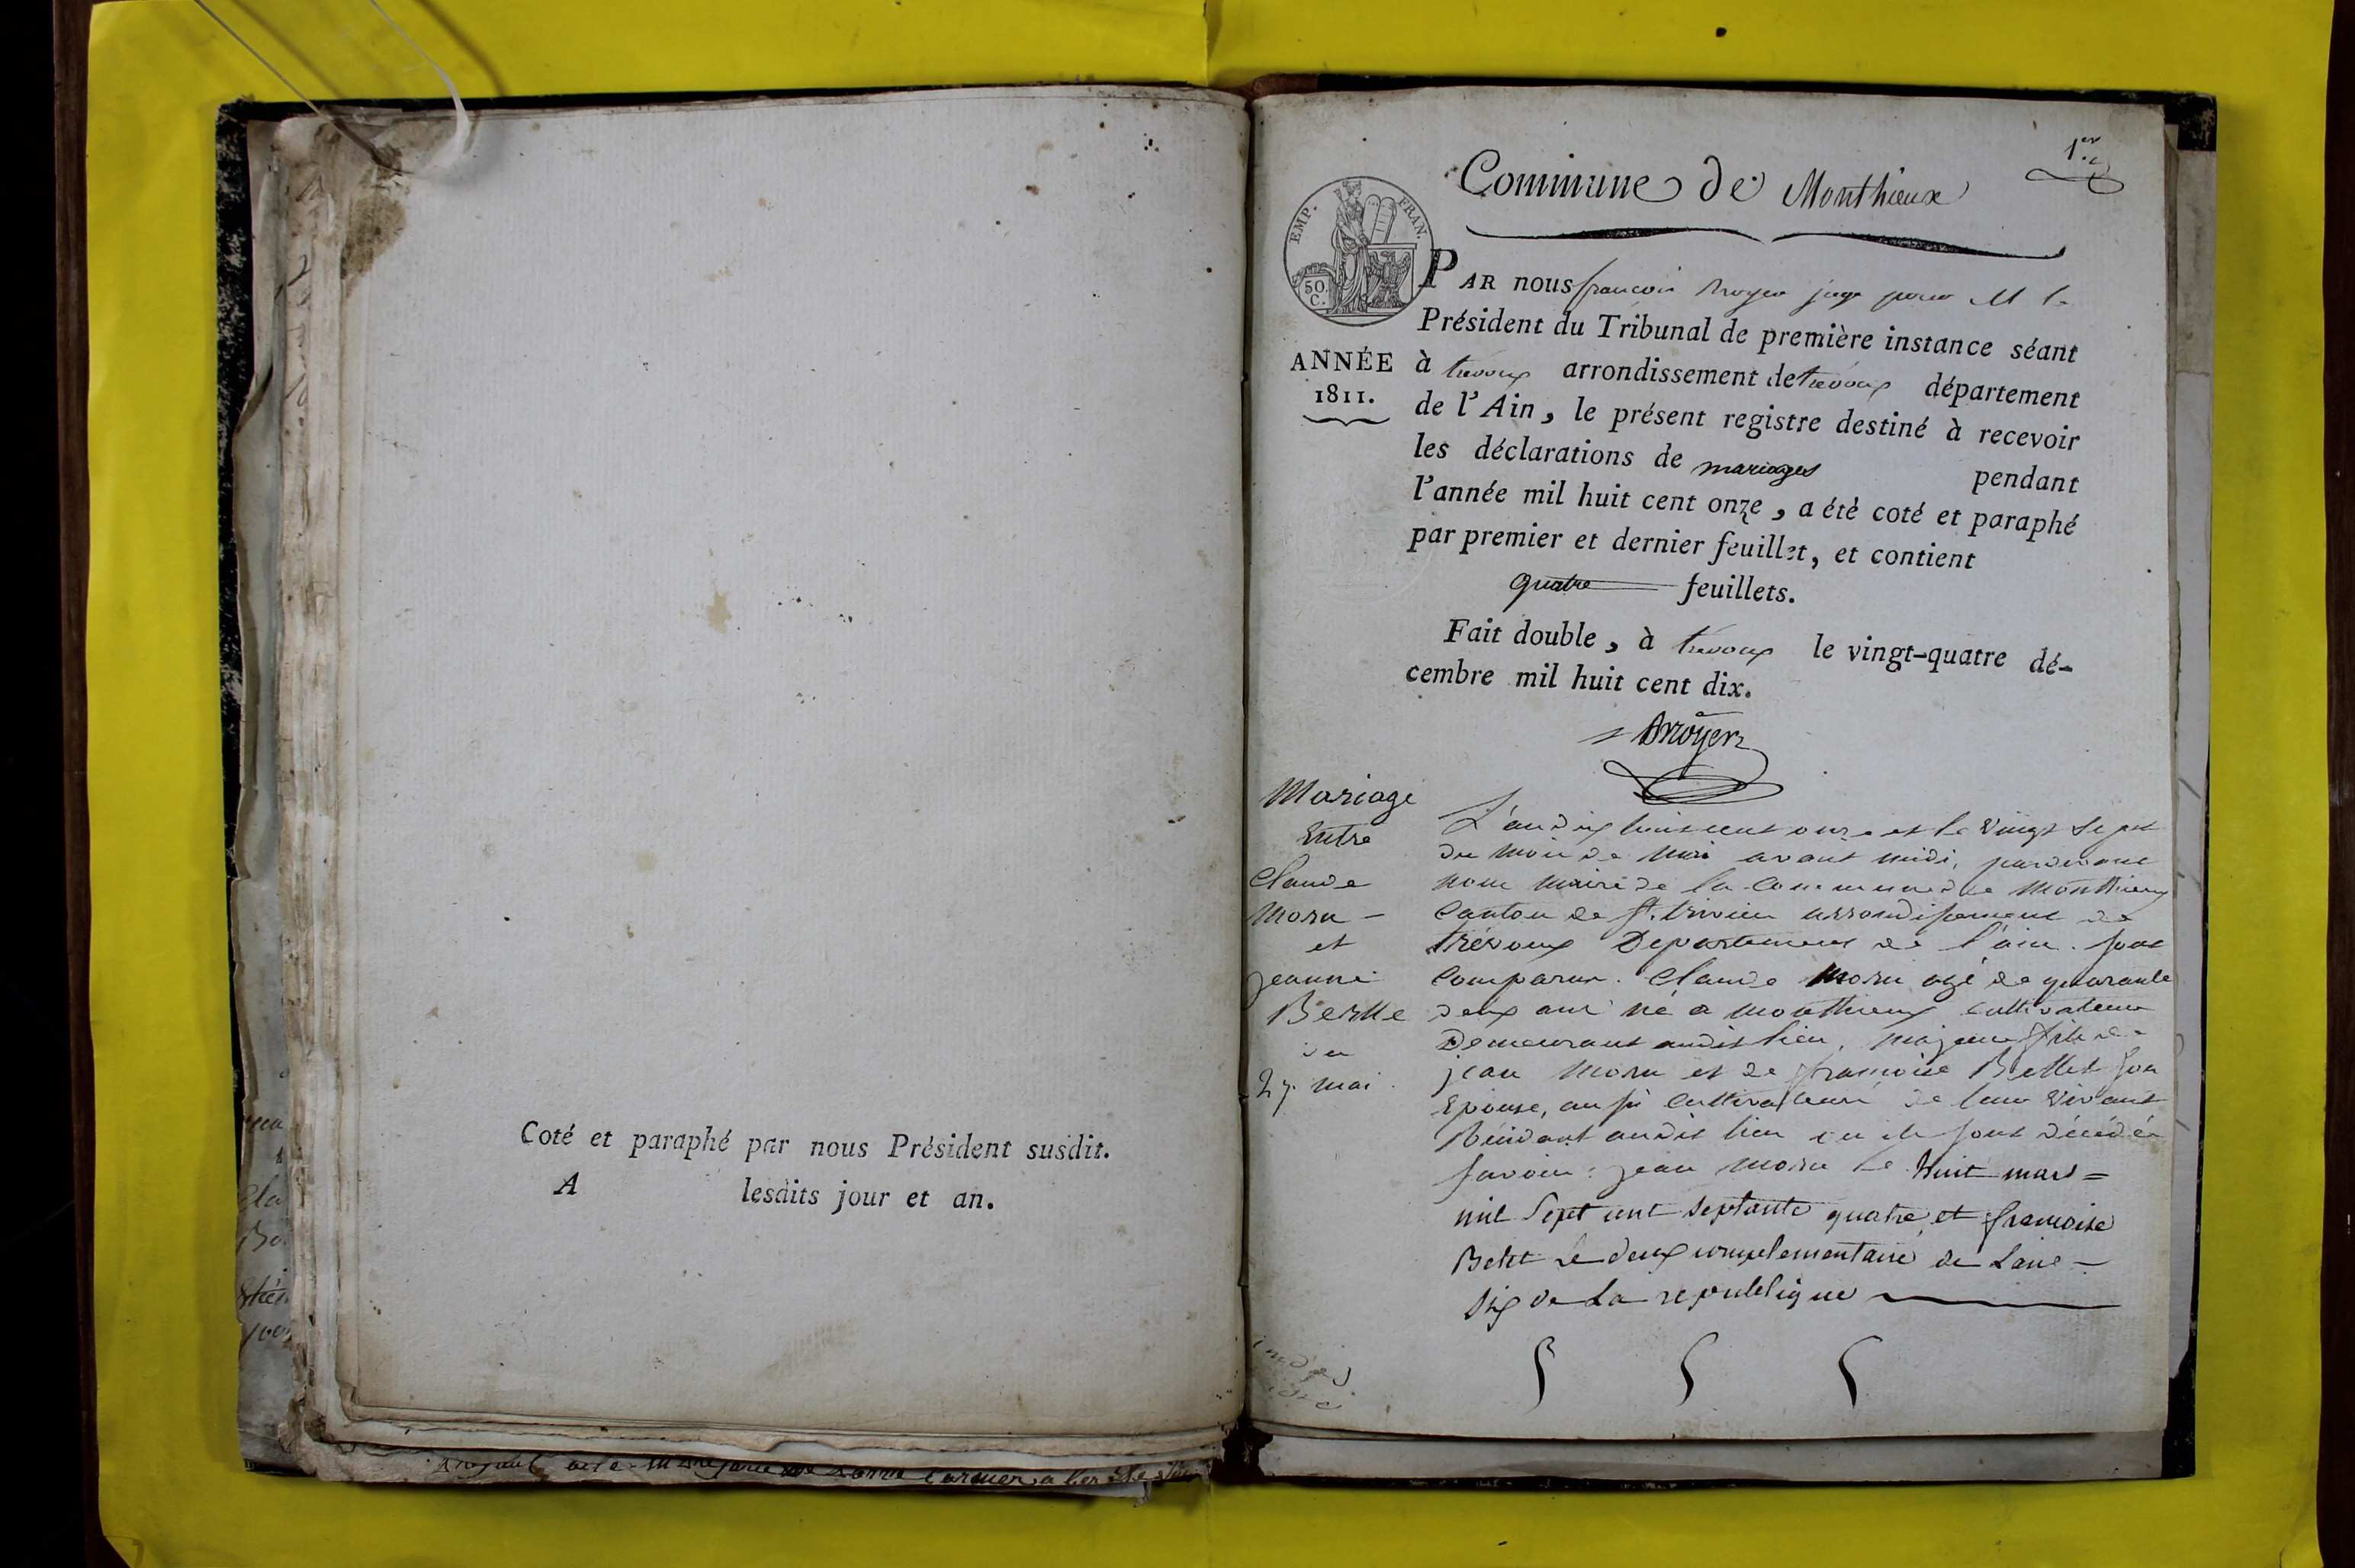 Coté et paraphé par nous Président susdit.
A lesdits jour et an.
1er
Commune de Monthieux
EMP. FRAN.
50 C.
ANNÉE
1811.
PAR nous françois juge pour M le
Président du Tribunal de première instance séant
à trévoux arrondissement de trévoux département
de l'Ain, le présent registre destiné à recevoir
les déclarations de mariages pendant
l'année mil huit cent onze, a été coté et paraphé
par premier et dernier feuillet, et contient
quatre feuillets.
Fait double, à trévoux le vingt-quatre dé-
cembre mil huit cent dix.
Mariage
Entre
Claude
Moru -
et
jeanne
du
27 mai
L'an dix huit cent onze et le Vingt Sept
du mois de Mai avant midi, pardevant
nous maire de la Commune de Monthieux
Canton de St. trivier arrondissement de
trévoux Departement de l'ain. sont
Comparus. Claude Moru agé de quarante
deux ans né a Monthieux cultivateur
Demeurant audit lieu, majeur fils de
jean Moru et de françoise Bettet son
Epouse, aussi cultivateurs de leur Vivant
Résidant audit lieu ou ils sont décédés
Savoir : jean Moru le huit mars =
mil Sept cent septante quatre, et françoise
Betet Le deux complementaire de Lane -
Six de La republique